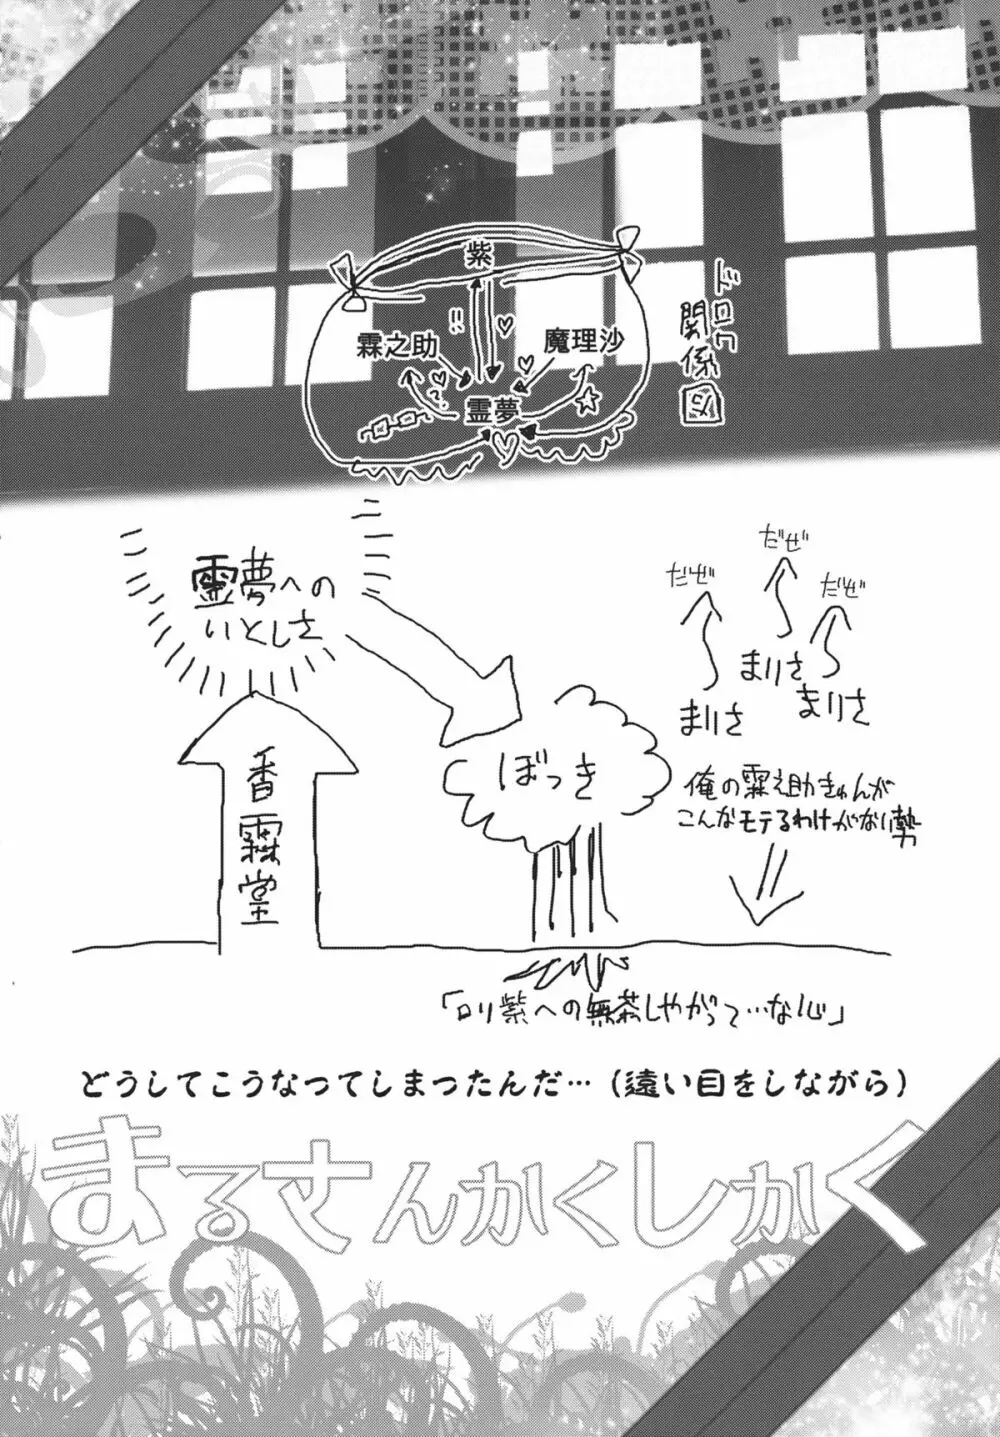 ドロワ
関係図
紫
霖之助
魔理沙
!!
?
霊夢
霊夢への
いとしさ
だぜ
だぜ
だぜ
まりさ
まりさ
まりさ
香霖堂
ぼっき
俺の霖之助きゅんが
こんなモテるわけがない勢
「ロリ紫への無茶しやがって…な心」
どうしてこうなつてしまつたんだ…(遠い目をしながら)
まるさんかくしかく